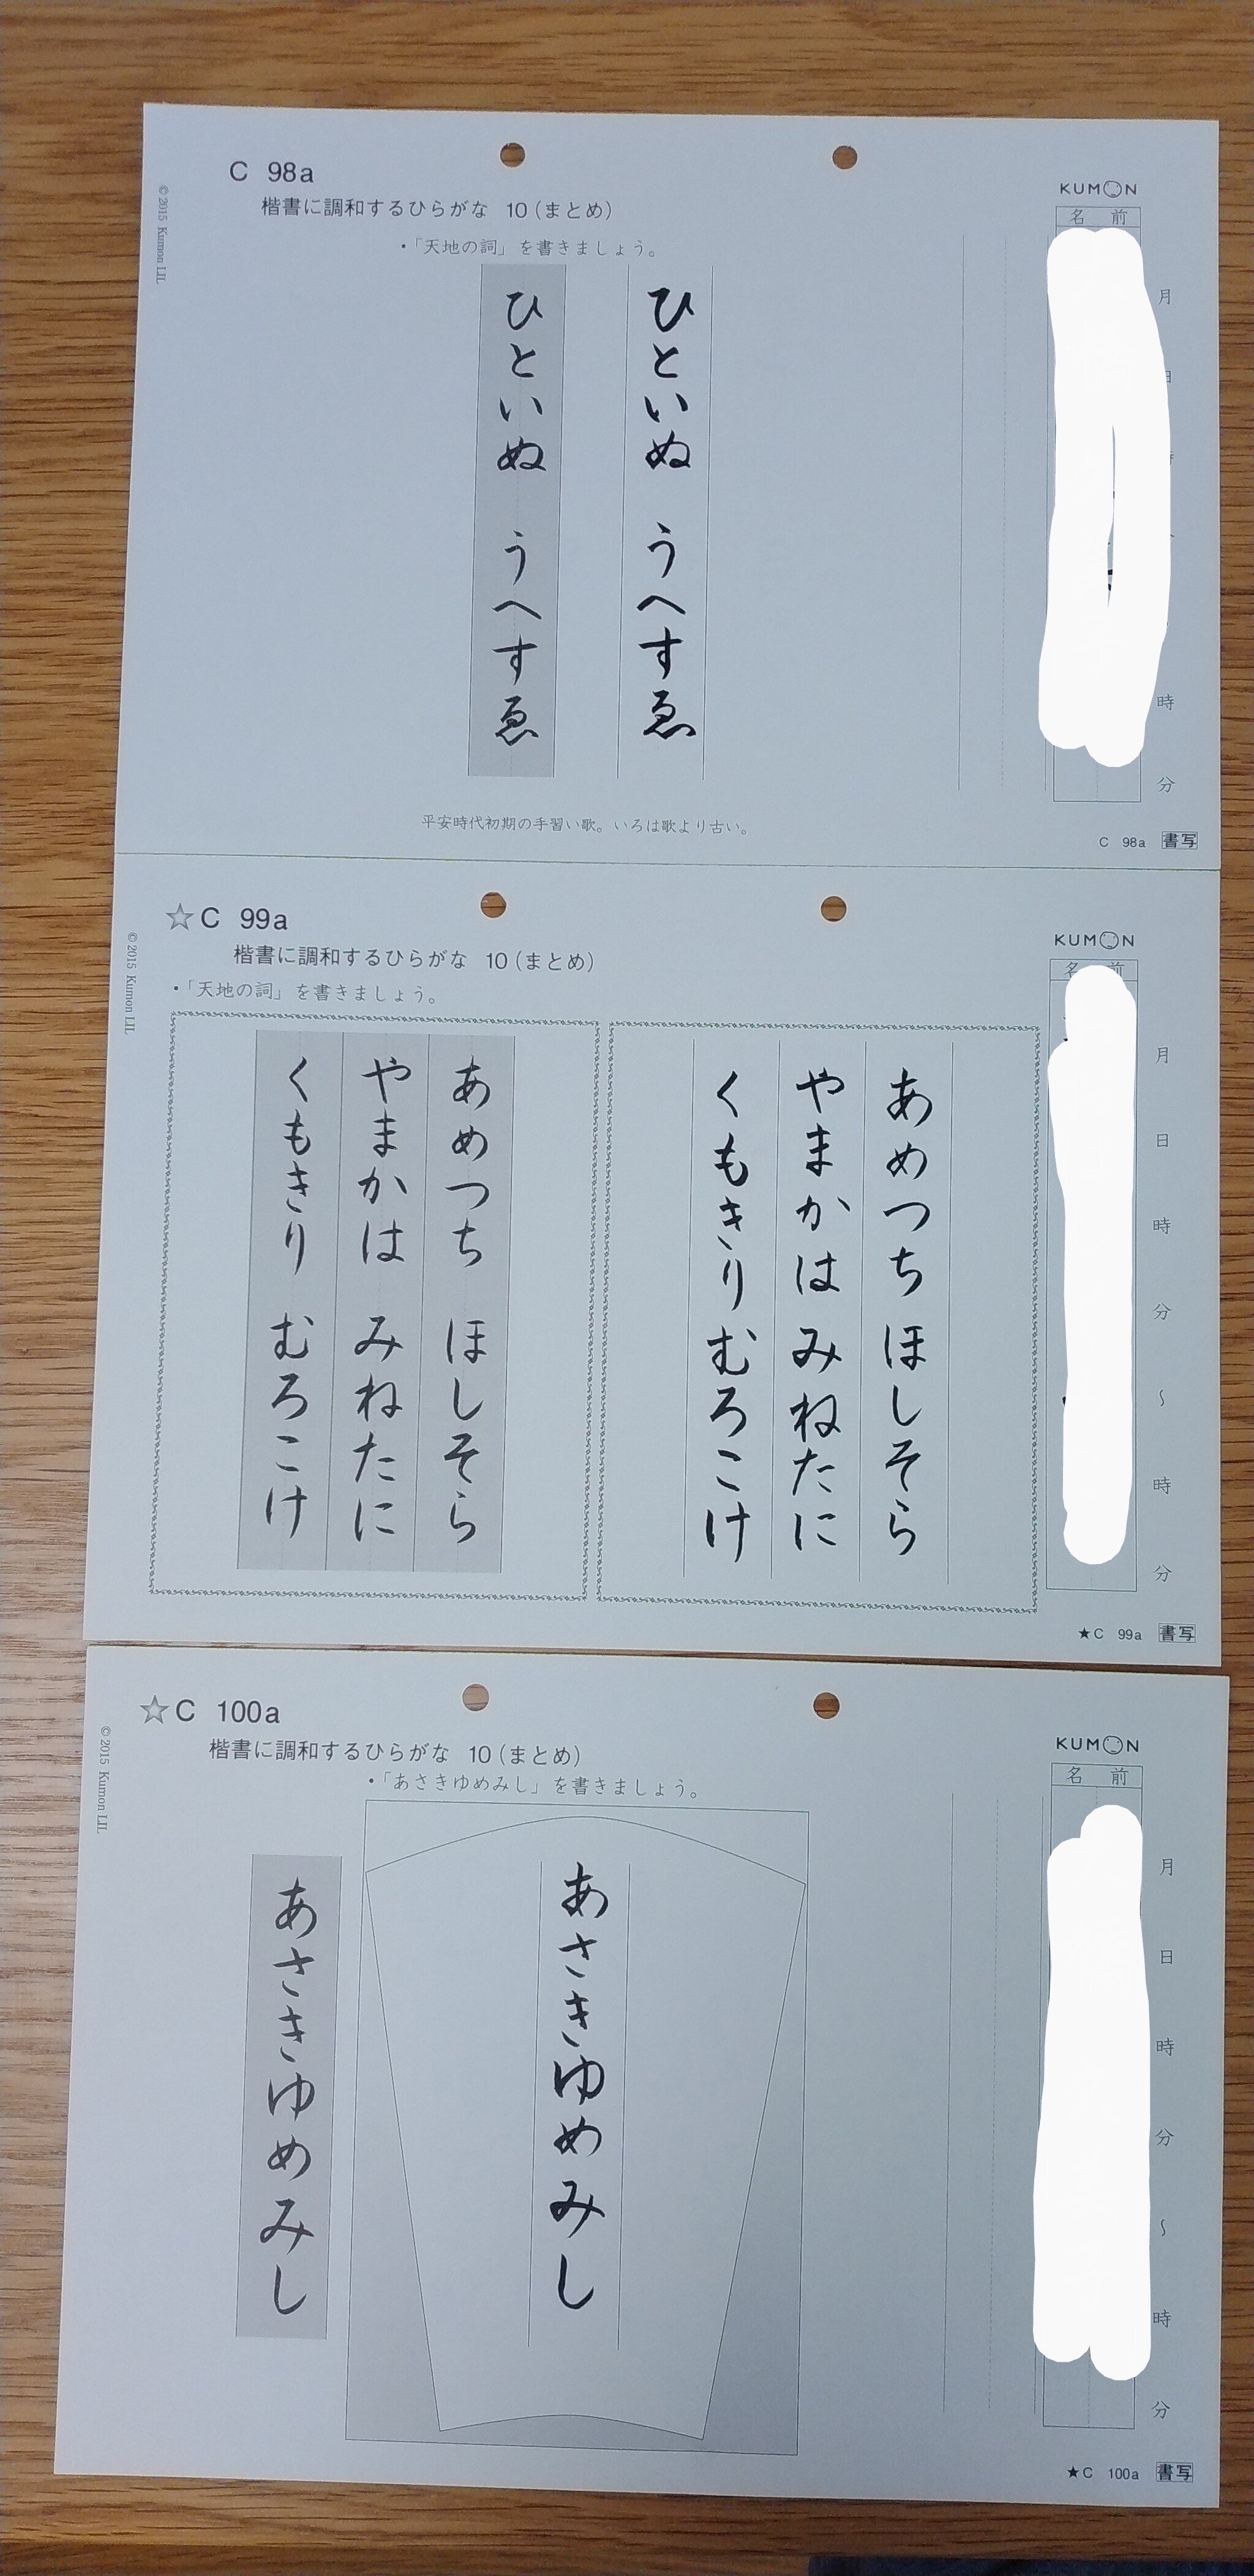 C 98a
楷書に調和するひらがな 10（まとめ）
・「天地の詞」を書きましょう。
KUMON
名 前
月
時
分
ひといぬ うへすゑ
ひといぬ うへすゑ
平安時代初期の手習い歌。いろは歌より古い。
© 2015 Kumon LIL
C 98a 書写
☆C 99a
楷書に調和するひらがな 10（まとめ）
・「天地の詞」を書きましょう。
KUMON
名 前
月 日 時 分 〜 時 分
あめつち ほしそら
やまかは みねたに
くもきり むろこけ
あめつち ほしそら
やまかは みねたに
くもきり むろこけ
© 2015 Kumon LIL
★C 99a 書写
☆C 100a
楷書に調和するひらがな 10（まとめ）
・「あさきゆめみし」を書きましょう。
KUMON
名 前
月 日 時 分 〜 時 分
あさきゆめみし
あさきゆめみし
© 2015 Kumon LIL
★C 100a 書写